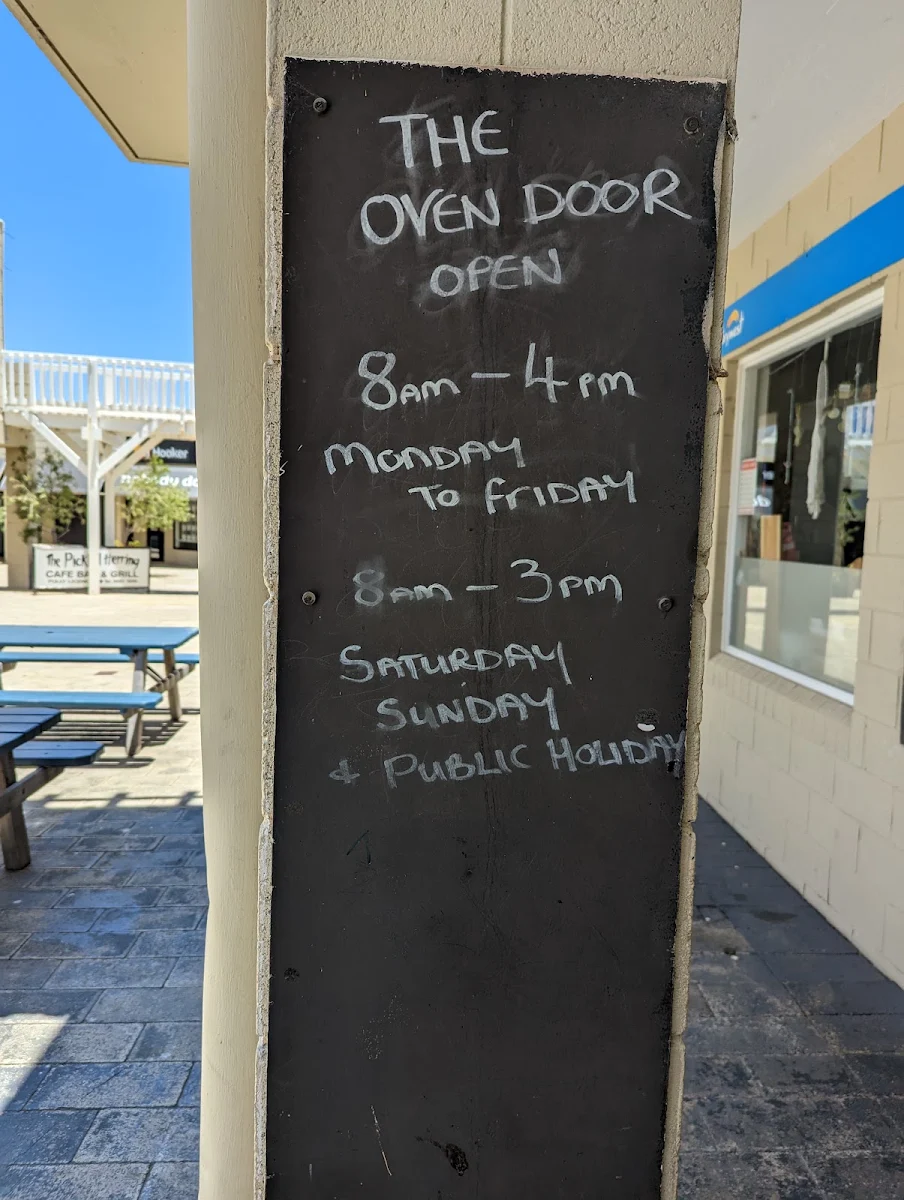 THE
OVEN DOOR
OPEN
8AM - 4PM
MONDAY
TO FRIDAY
8AM - 3PM
SATURDAY
SUNDAY
& PUBLIC HOLIDAY
Hooker
The
Herring
CAFE BAR & GRILL